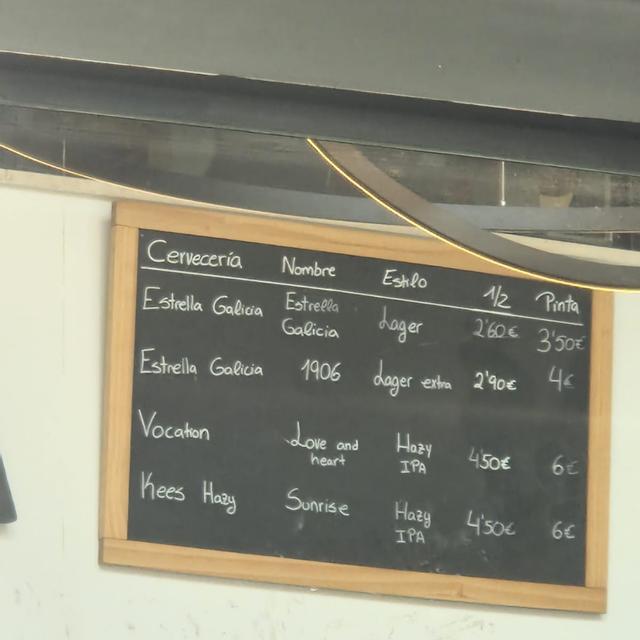 Cervecería Nombre Estilo 1/2 Pinta
Estrella Galicia Estrella Galicia Lager 2'60€ 3'50€
Estrella Galicia 1906 Lager extra 2'90€ 4€
Vocation Love and heart Hazy IPA 4'50€ 6€
Kees Hazy Sunrise Hazy IPA 4'50€ 6€